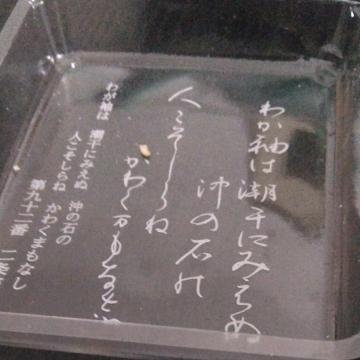 わが袖は潮干にみえぬ
沖の石の
人こそしらね
かわくまもなし
わが袖は 潮干にみえぬ 沖の石の
人こそしらね かわくまもなし
第九十二番 二条